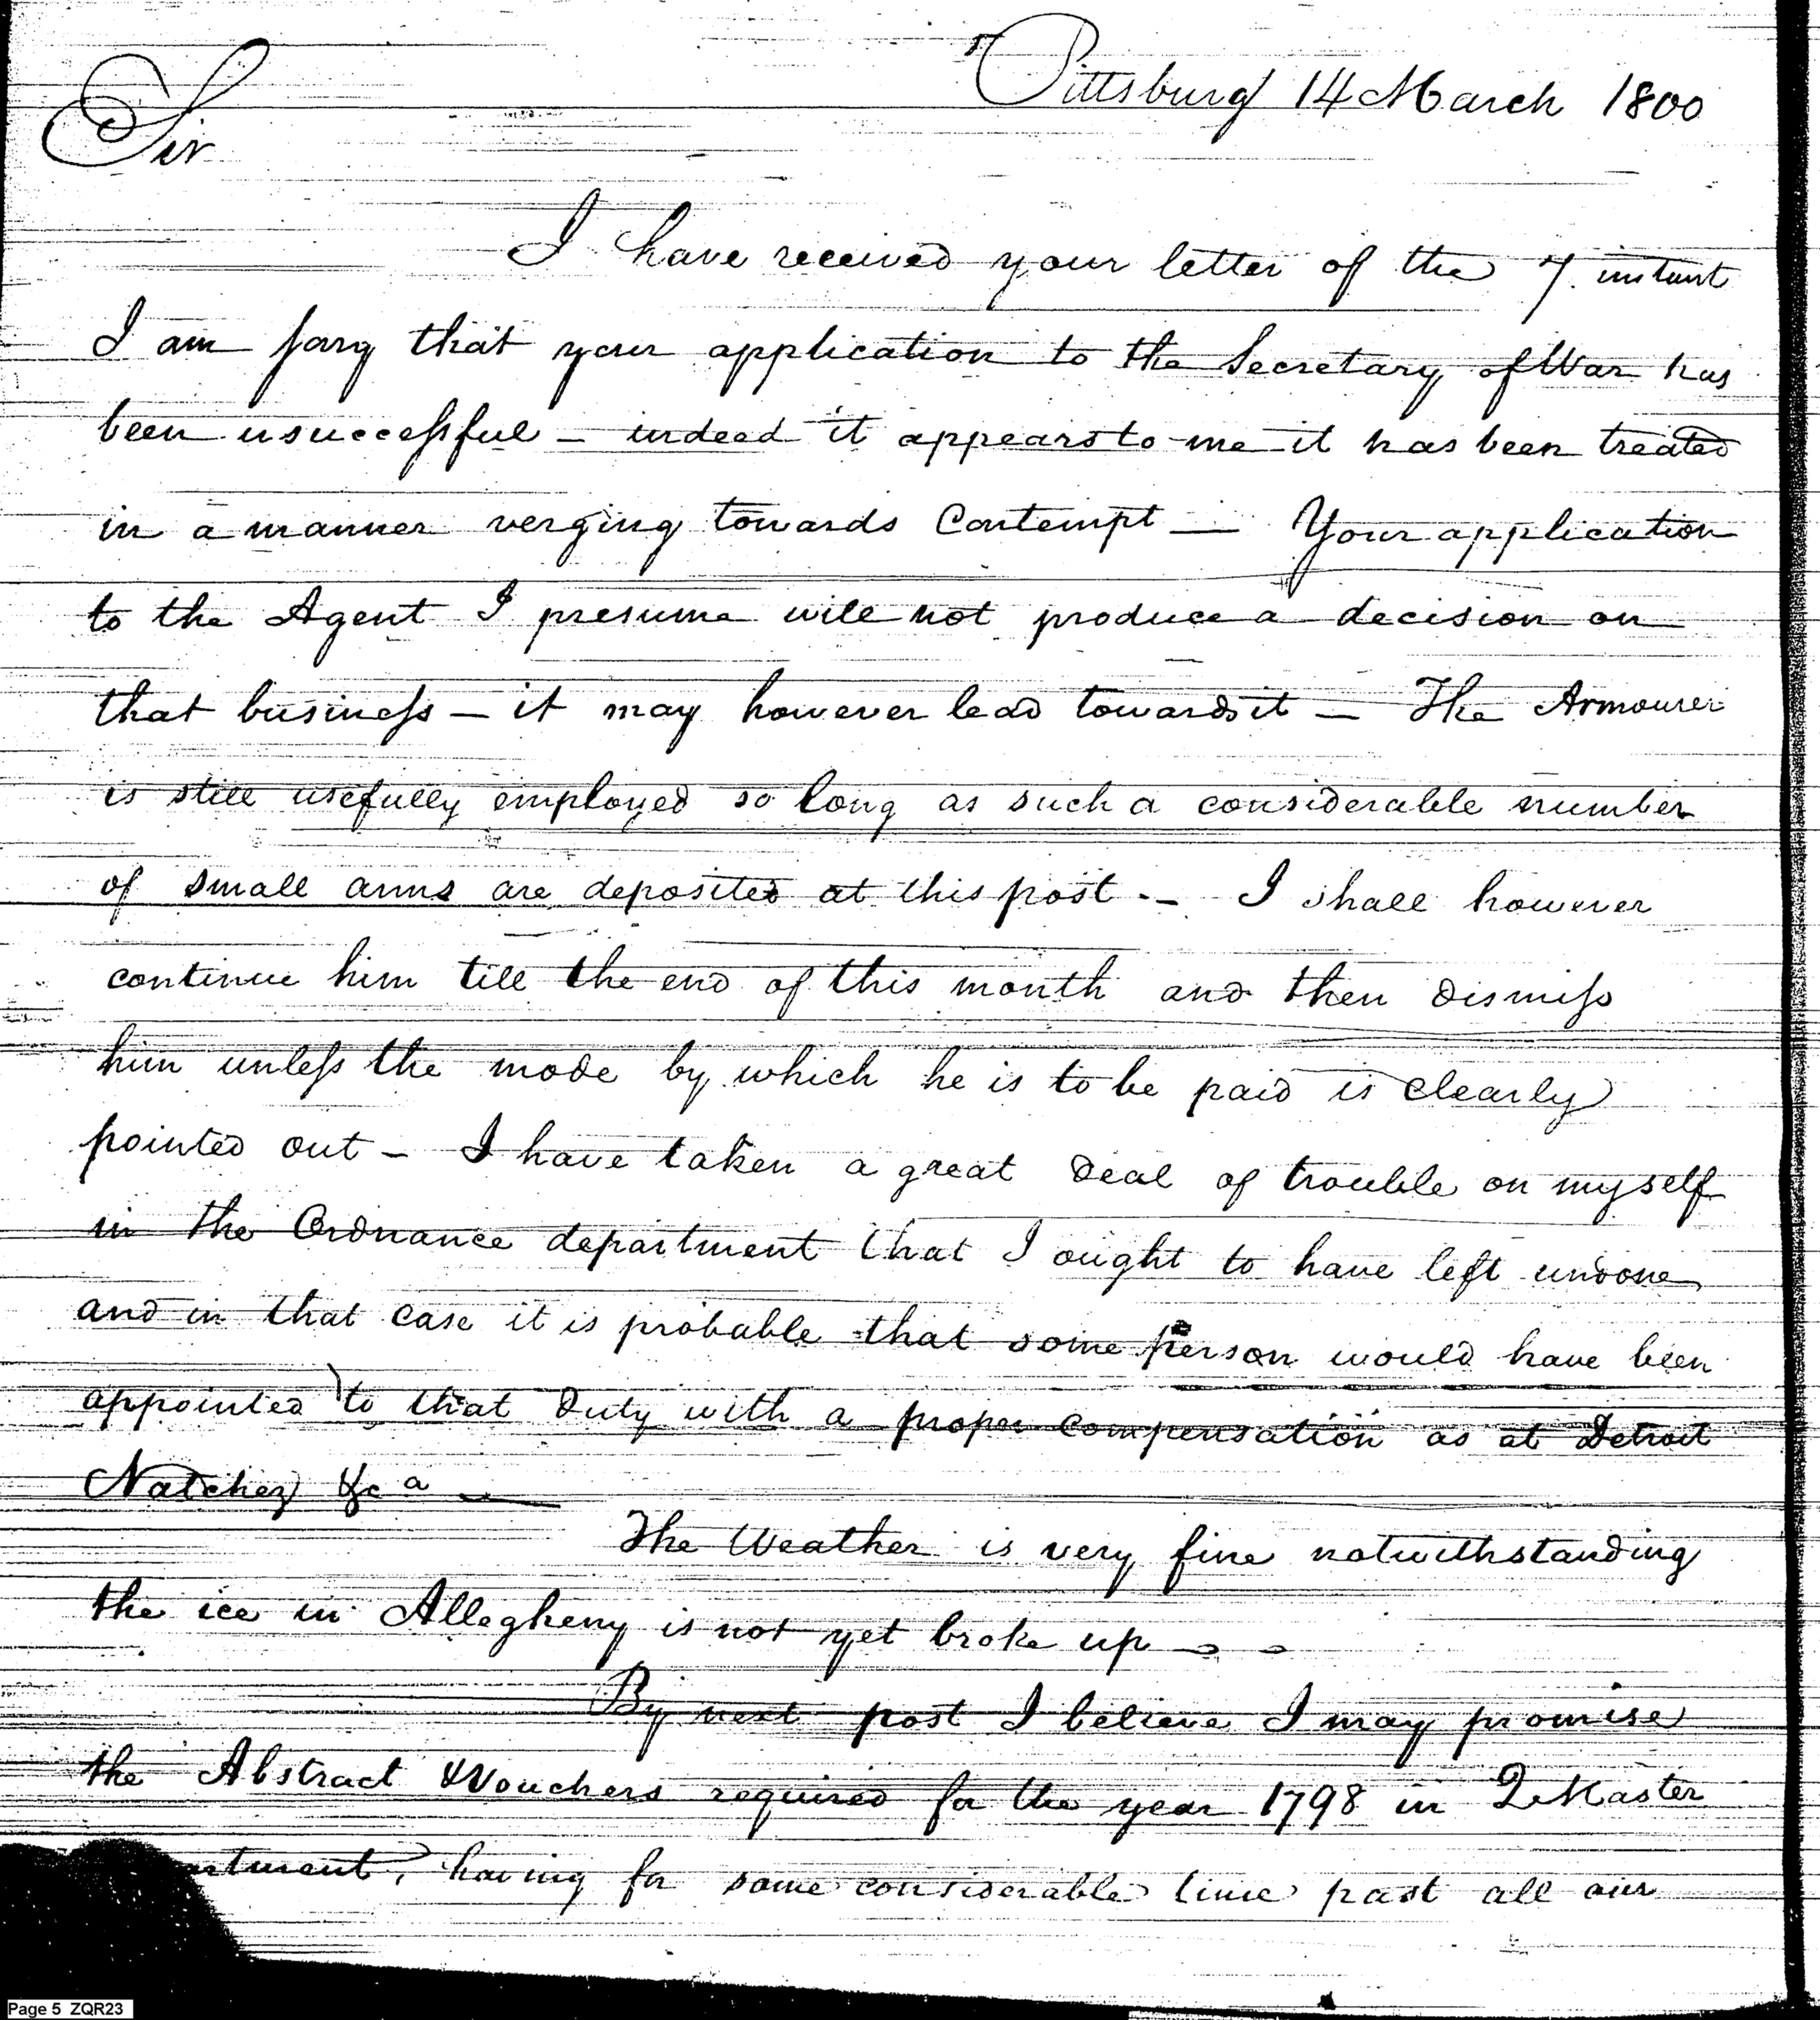 Pittsburg 14 March 1800
Sir
I have received your letter of the 7. instant
I am sory that your application to the Secretary of War has
been usuccessful – indeed it appears to me it has been treated
in a manner verging towards Contempt — Your application
to the Agent I presume will not produce a decision on
that business – it may however lead towards it – The Armourer
is still usefully employed so long as such a considerable number
of small arms are deposited at this post. – I shall however
continue him till the end of this month and then dismiss
him unless the mode by which he is to be paid is clearly
pointed out – I have taken a great deal of trouble on myself
in the Ordnance department that I ought to have left undone
and in that case it is probable that some person would have been
appointed to that duty with a proper compensation as at Detroit
Natchez &c a —
The Weather is very fine notwithstanding
the ice in Allegheny is not yet broke up – –
By next post I believe I may promise
the Abstract & Vouchers required for the year 1798 in QMaster
artment, having for some considerable time past all our
Page 5 ZQR23